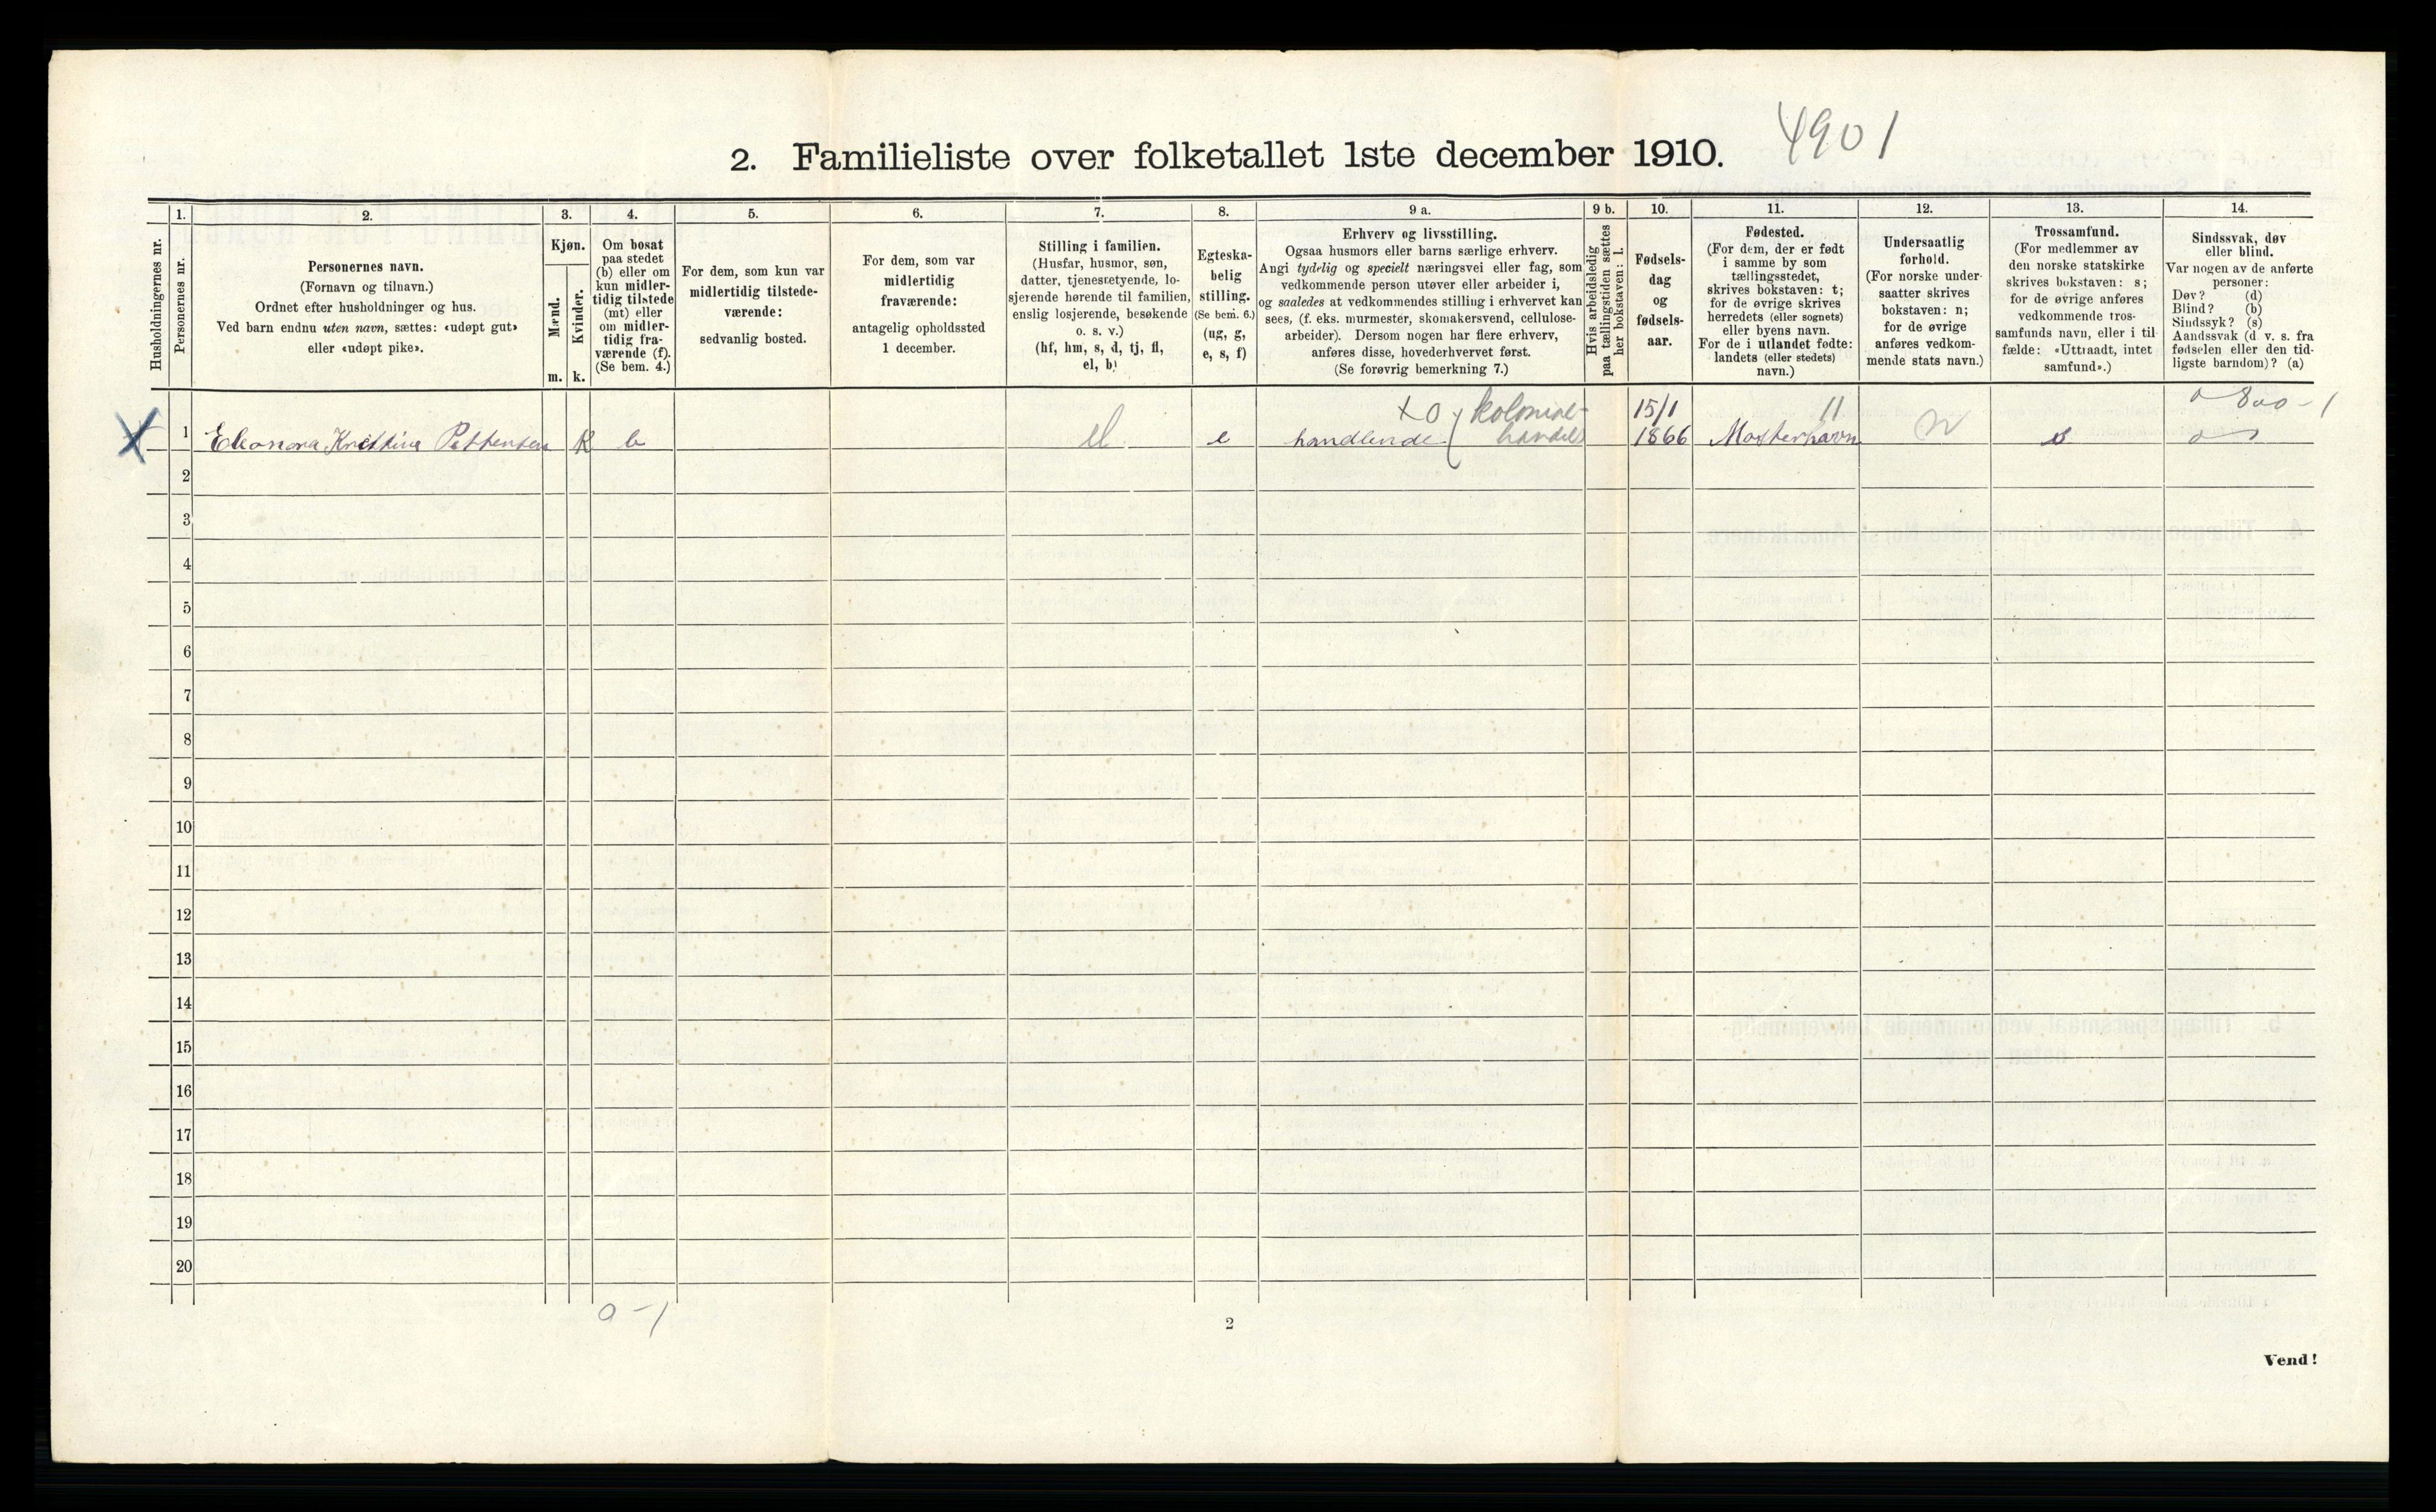 4901
2. Familieliste over folketallet 1ste december 1910.
Husholdningernes nr.
1.
Personernes nr.
2.
Personernes navn.
(Fornavn og tilnavn.)
Ordnet efter husholdninger og hus.
Ved barn endnu uten navn, sættes: «udøpt gut»
eller «udøpt pike».
3.
Kjøn.
Mænd.
Kvinder.
m.
k.
4.
Om bosat
paa stedet
(b) eller om
kun midler-
tidig tilstede
(mt) eller
om midler-
tidig fra-
værende (f).
(Se bem. 4.)
5.
For dem, som kun var
midlertidig tilstede-
værende:
sedvanlig bosted.
6.
For dem, som var
midlertidig
fraværende:
antagelig opholdssted
1 december.
7.
Stilling i familien.
(Husfar, husmor, søn,
datter, tjenestetyende, lo-
sjerende hørende til familien,
enslig losjerende, besøkende
o. s. v.)
(hf, hm, s, d, tj, fl,
el, b)
8.
Egteska-
belig
stilling.
(Se bem. 6.)
(ug, g,
e, s, f)
9 a.
Erhverv og livsstilling.
Ogsaa husmors eller barns særlige erhverv.
Angi tydelig og specielt næringsvei eller fag, som
vedkommende person utøver eller arbeider i,
og saaledes at vedkommendes stilling i erhvervet kan
sees, (f. eks. murmester, skomakersvend, cellulose-
arbeider). Dersom nogen har flere erhverv,
anføres disse, hovederhvervet først.
(Se forøvrig bemerkning 7.)
9 b.
Hvis arbeidsledig
paa tællingstiden sættes
her bokstaven: l.
10.
Fødsels-
dag
og
fødsels-
aar.
11.
Fødested.
(For dem, der er født
i samme by som
tællingsstedet,
skrives bokstaven: t;
for de øvrige skrives
herredets (eller sognets)
eller byens navn.
For de i utlandet fødte:
landets (eller stedets)
navn.)
12.
Undersaatlig
forhold.
(For norske under-
saatter skrives
bokstaven: n;
for de øvrige
anføres vedkom-
mende stats navn.)
13.
Trossamfund.
(For medlemmer av
den norske statskirke
skrives bokstaven: s;
for de øvrige anføres
vedkommende tros-
samfunds navn, eller i til-
fælde: «Uttraadt, intet
samfund».)
14.
Sindssvak, døv
eller blind.
Var nogen av de anførte
personer:
Døv? (d)
Blind? (b)
Sindssyk? (s)
Aandssvak (d. v. s. fra
fødselen eller den tid-
ligste barndom)? (a)
xo kolonial- 15/1 11 0 800 - 1
1 Eleonora Kristina Pettersen K b el e handlende handel 1866 Mosterhavn n s
2
3
4
5
6
7
8
9
10
11
12
13
14
15
16
17
18
19
20
0-1
2
Vend!